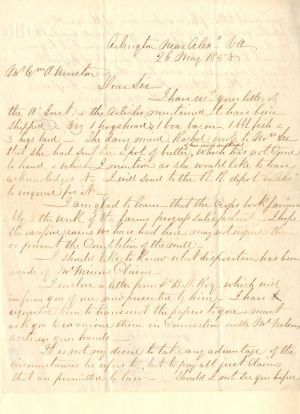 Arlington Near Alexa Va
26 May 1858
Mr Wm Winston
Dear Sir
I have recd your letter of
the 11 Inst. & the articles mentioned to have been
shipped. Viz 1 hogshead 1 box bacon 1 bbl fish
3 bags lard. The day
that she had sent me a pot of butter, which has not come
to hand & which I mention as she would like to have
acknowledged it. I did send to the R. R. depot
to inquire for it
I am glad to learn that the crops look
& the work of the farms progress I hope
the excessive rains we have had here may not injure them
or prevent the completion of the mill
I should like to know what disposition has been
made of Mr claim.
I enclose a letter from which will
inform you of one now presented by him I have
requested him to transmit the papers to you & must
ask you to examine them in connection with Mr Nelson
in your hands
It is not my desire to take any advantage of the
circumstances he refers to, but to pay all just claims
that are permitted by law Should I not see you before